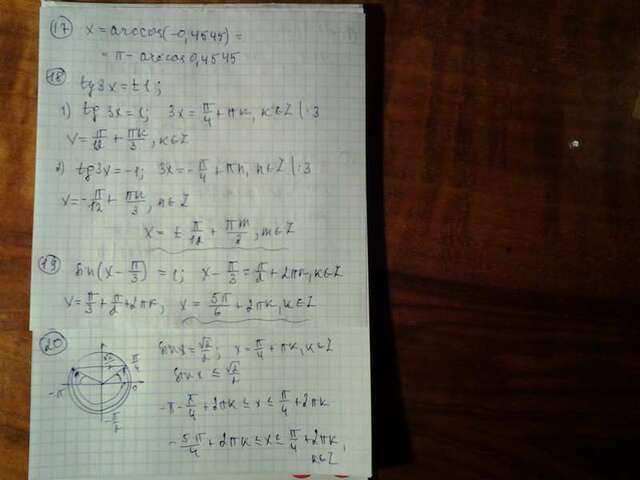 17 x = arccos(-0,4545) =
= π - arccos 0,4545
18 tg 3x = ±1;
1) tg 3x = 1; 3x = π/4 + πk, k∈Z |:3
x = π/12 + πk/3, k∈Z
2) tg 3x = -1; 3x = -π/4 + πn, n∈Z |:3
x = -π/12 + πn/3, n∈Z
x = ± π/12 + πm/3, m∈Z
19 sin(x - π/3) = 1; x - π/3 = π/2 + 2πk, k∈Z
x = π/3 + π/2 + 2πk, x = 5π/6 + 2πk, k∈Z
20 sin x = √2/2; x = π/4 + πk, k∈Z
sin x ≤ √2/2
√2/2 π/4
-π 0
-π - π/4 + 2πk ≤ x ≤ π/4 + 2πk
-5π/4 + 2πk ≤ x ≤ π/4 + 2πk,
k∈Z